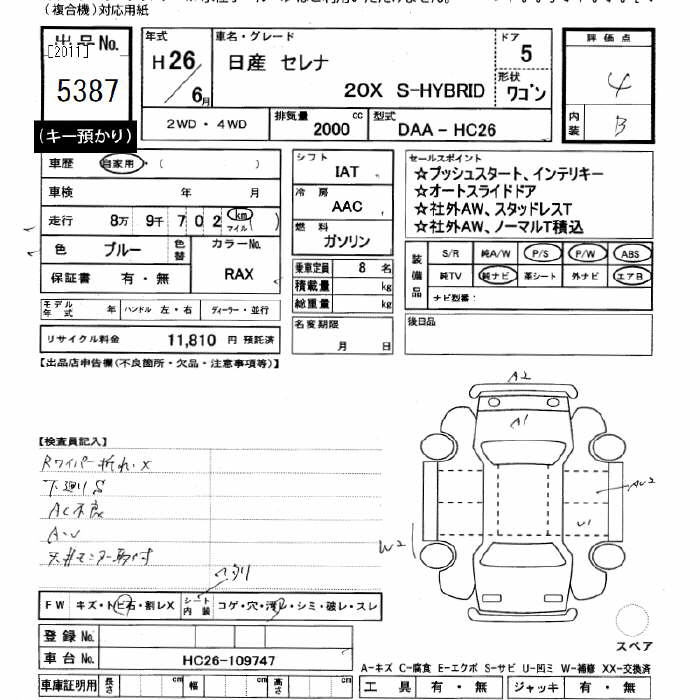 (複合機)対応用紙
出品No.
[2011]
5387
(キー預かり)
年式
H26/6月
車名・グレード
日産 セレナ
20X S-HYBRID
ドア
5
形状
ワゴン
評価点
4
内装
B
2WD・4WD
排気量
2000 cc
型式
DAA-HC26
車歴 自家用・( )
車検 年 月
走行 8万 9千 7 0 2 km マイル( )
色 ブルー 色替
カラーNo.
RAX
保証書 有・無
モデル年式 年 ハンドル 左・右 ディーラー・並行
リサイクル料金 11,810 円 預託済
シフト
IAT
冷房
AAC
燃料
ガソリン
乗車定員 8 名
積載量 kg
総重量 kg
名変期限
月 日
セールスポイント
☆プッシュスタート、インテリキー
☆オートスライドドア
☆社外AW、スタッドレスT
☆社外AW、ノーマルT積込
装備品
S/R 純A/W P/S P/W ABS
純TV 純ナビ 革シート 外ナビ エアB
ナビ型番:
後日品
【出品店申告欄(不良箇所・欠品・注意事項等)】
【検査員記入】
Rワイパー折れ・X
下廻りS
AC不良
A・U
天井モニター取付
ヘタリ
FW キズ・トビ石・割レX シート内装 コゲ・穴・汚レ・シミ・破レ・スレ
登録No.
車台No. HC26-109747
車庫証明用 長さ cm 幅 cm 高さ cm
A2
A1
AU2
U1
W2
スペア
A-キズ C-腐食 E-エクボ S-サビ U-凹ミ W-補修 XX-交換済
工具 有・無 ジャッキ 有・無